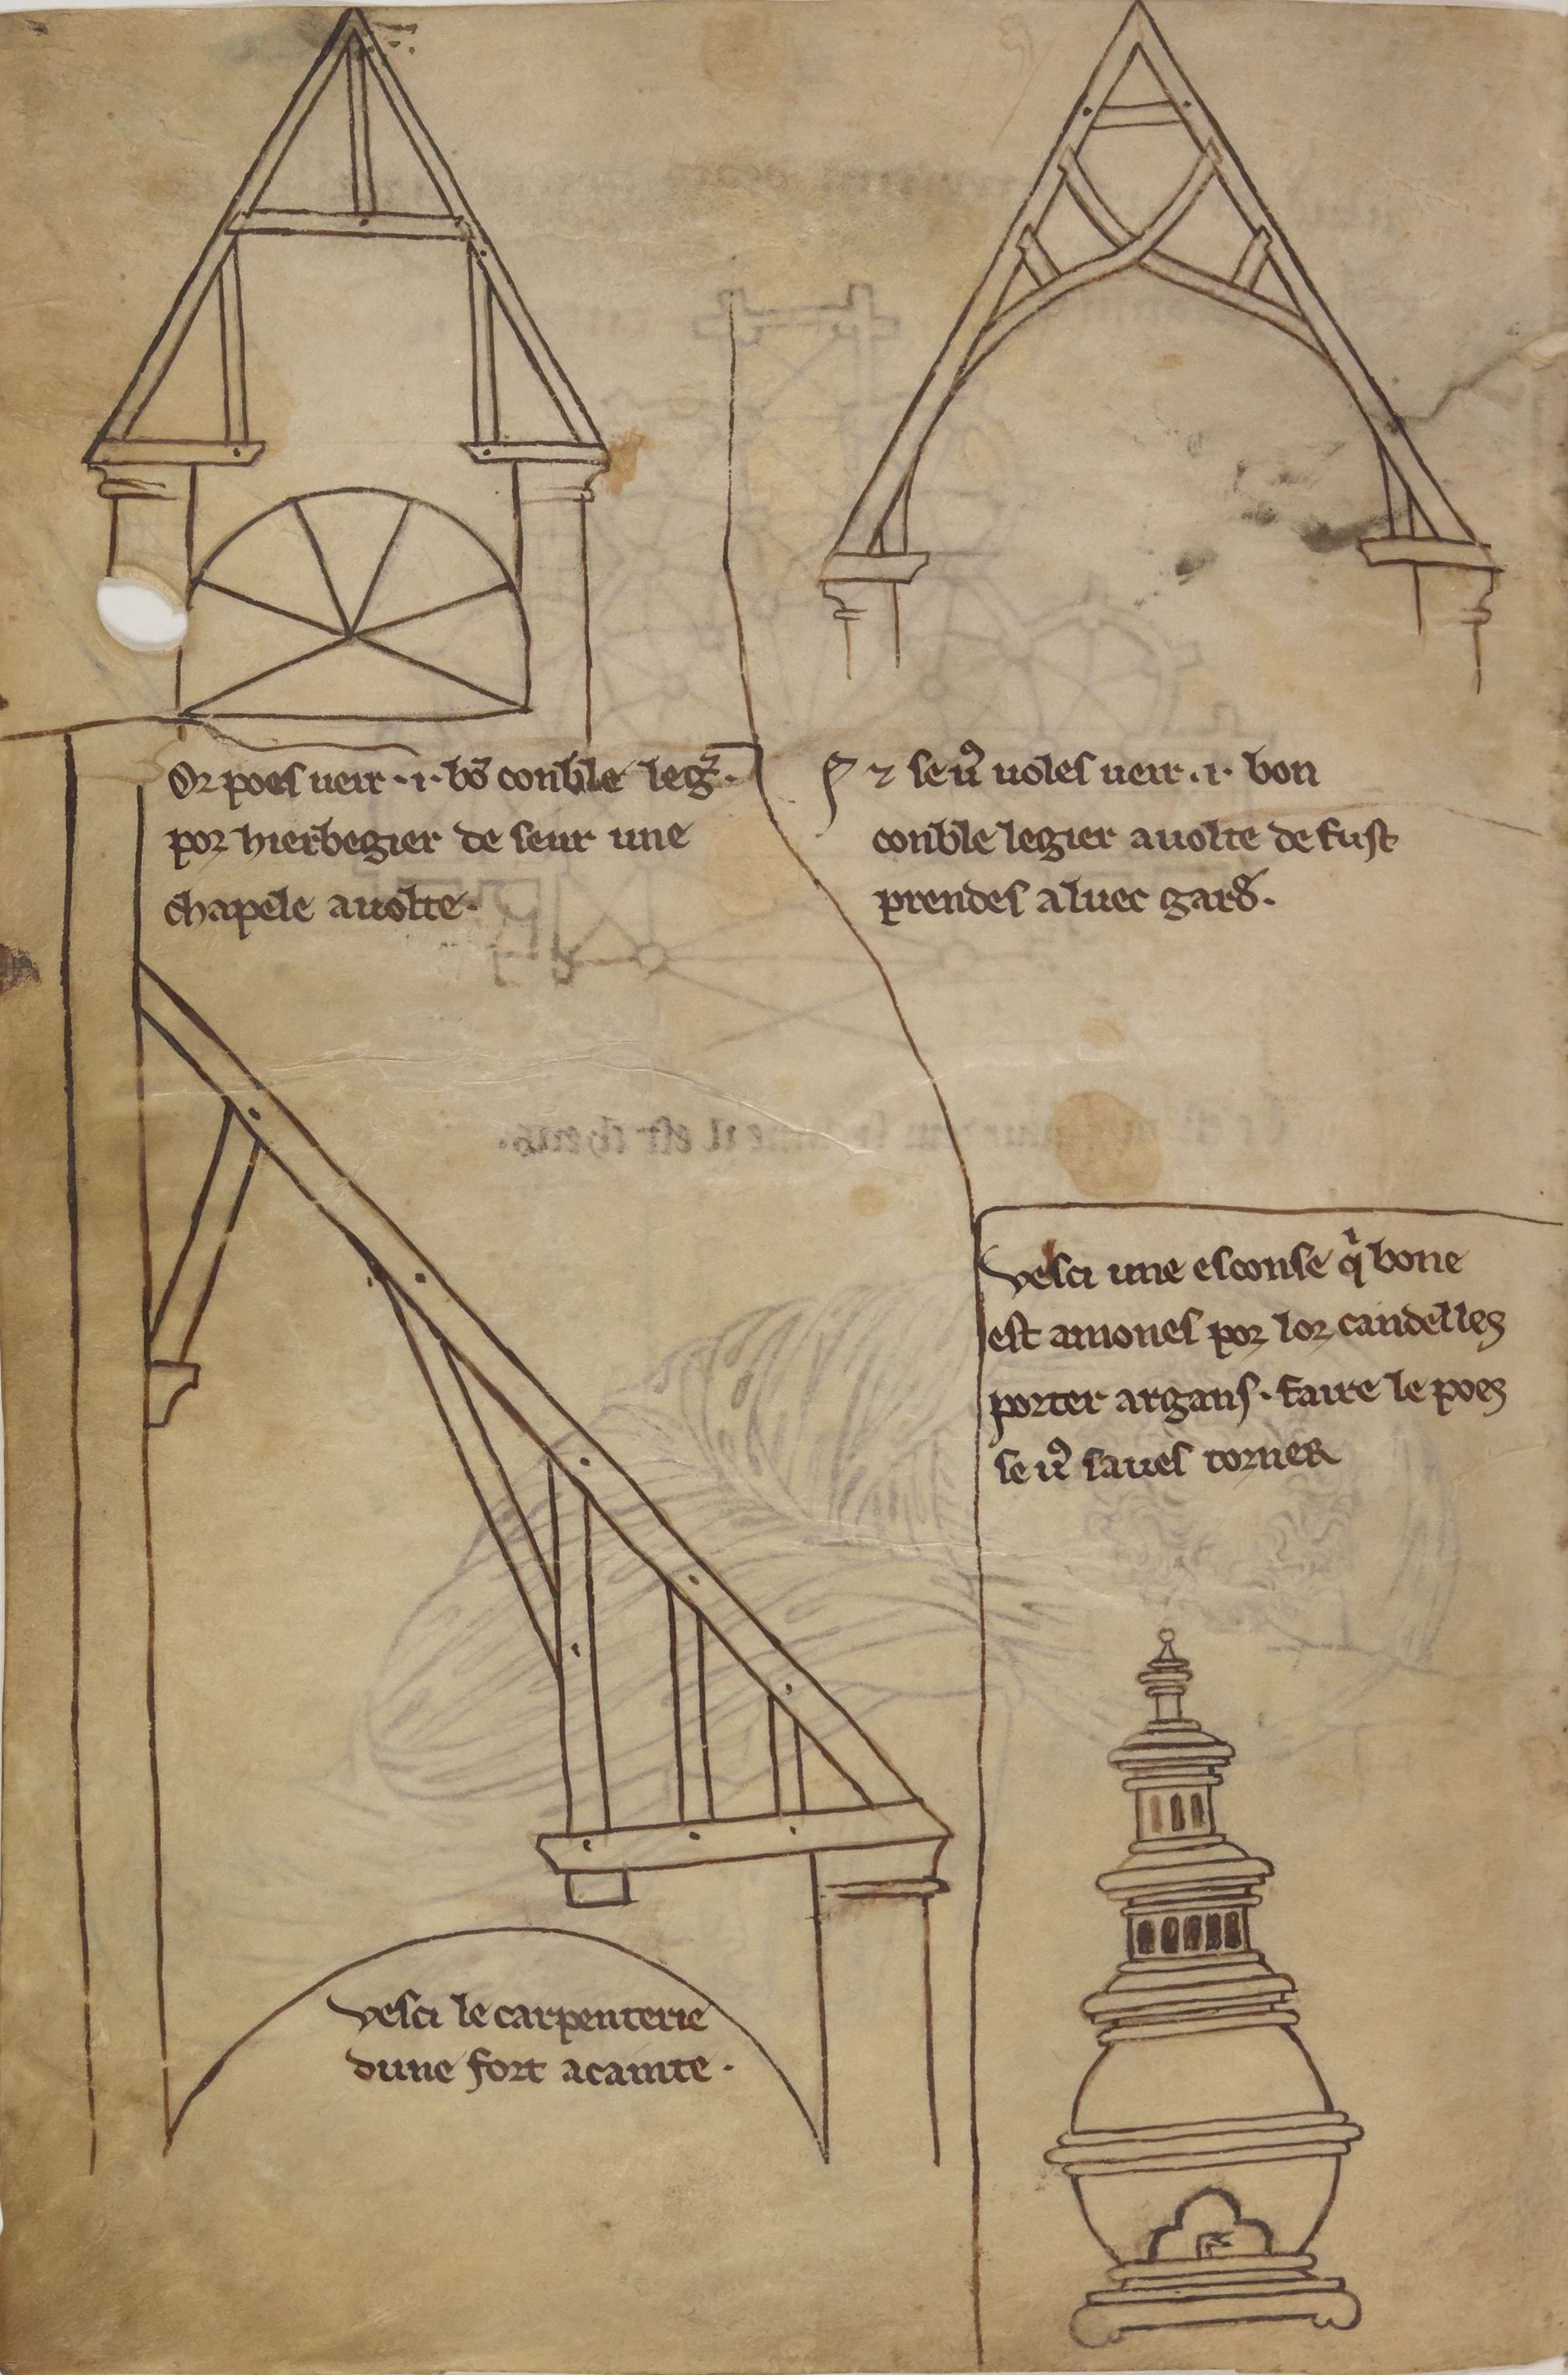 Or poes veir .i. bō conble leg̃.
por hierbegier de seur une
chapele a volte.
⁊ se vꝰ voles veir .i. bon
conble legier a volte de fust
prendes aluec gard̃.
Vesci une esconse q̇ bone
est a mones por lor candelles
porter argans. faire le poes
se vꝰ saves torner
Vesci le carpenterie
dune fort acainte.